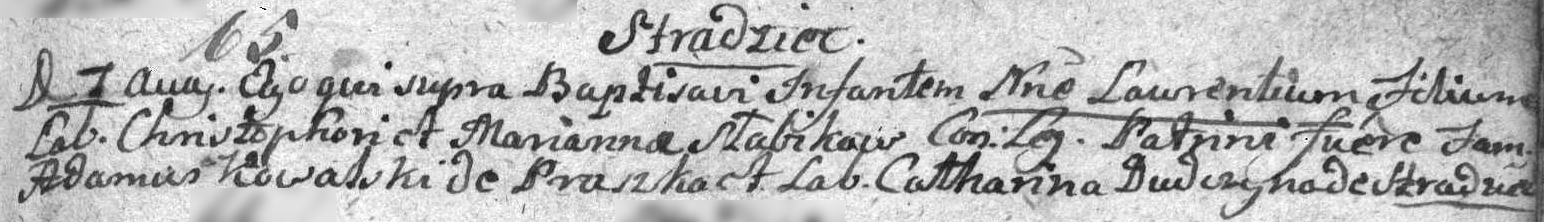 65
Stradziec.
D 7 Aug. Ego qui supra Baptisavi Infantem Nnē Laurentium Filium
Lab. Christophori et Mariannæ Stabikow Con: Leg. Patrini fuēre Fam.
Adamus Kowalski de Praszka et Lab. Catharina Dudczyna de Stradzie